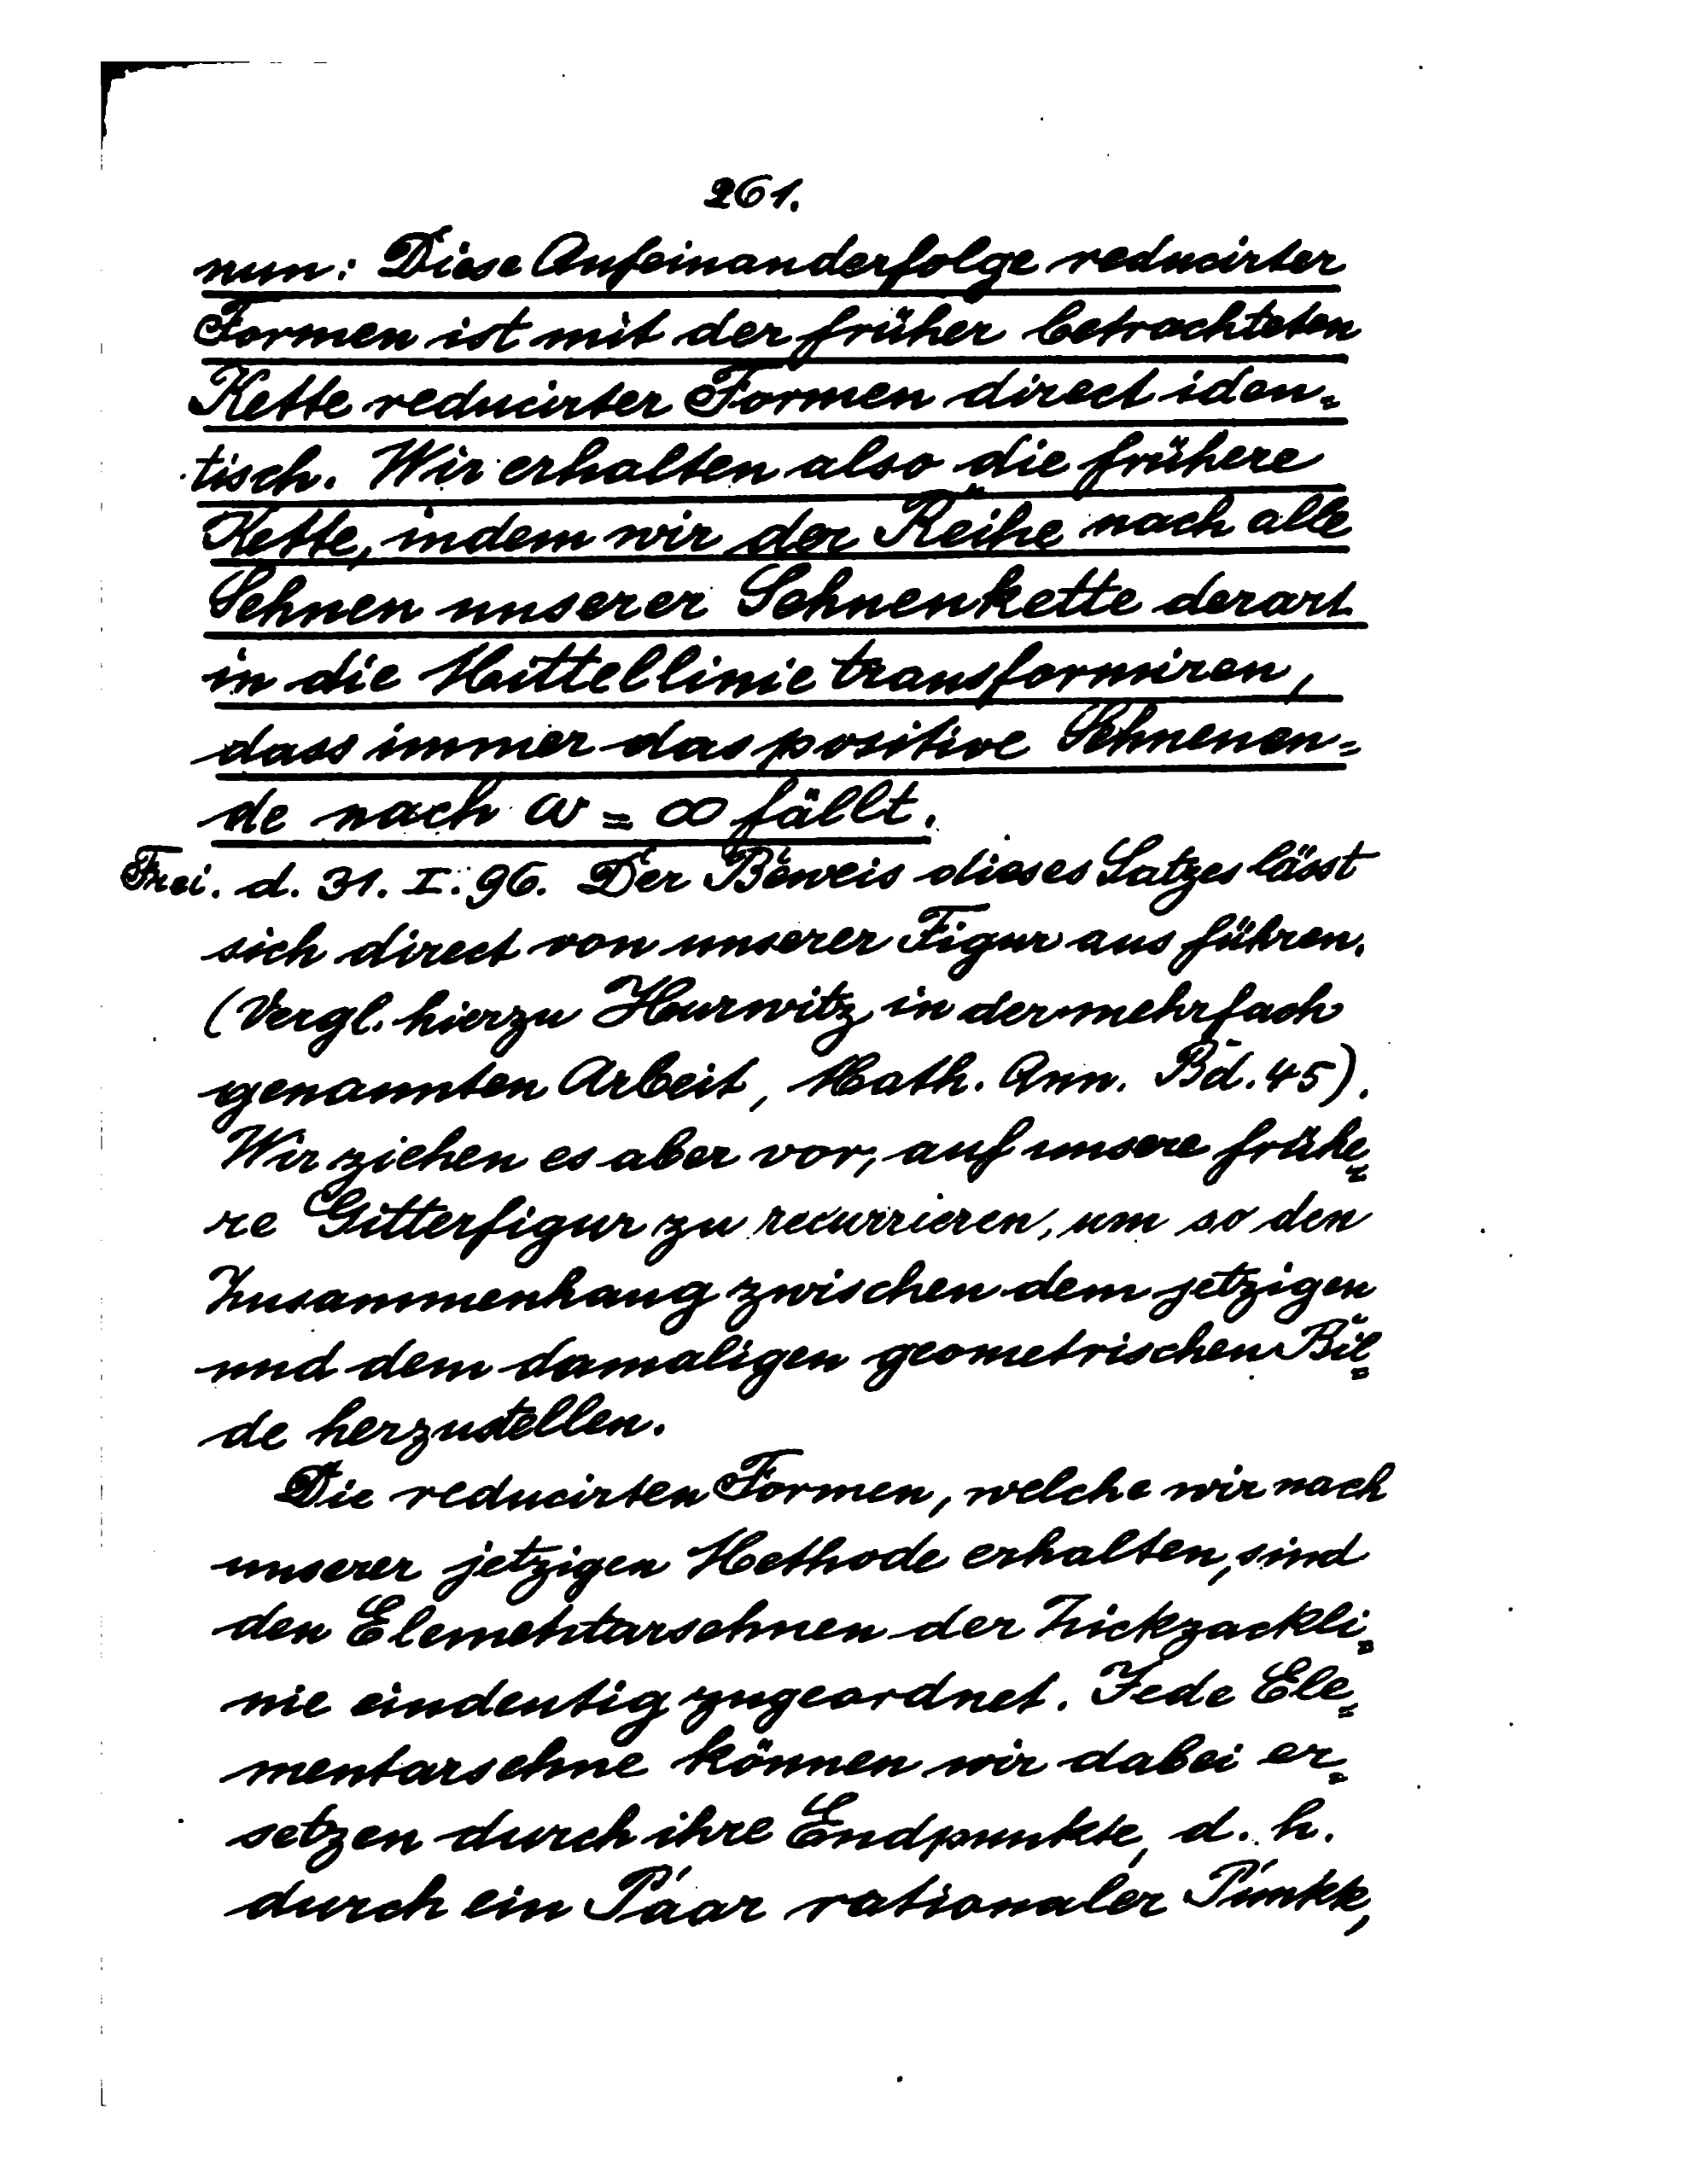 261.
nun: Diese Aufeinanderfolge reducirter
Formen ist mit der früher betrachteten
Kette reducirter Formen direct iden=
tisch. Wir erhalten also die frühere
Kette, indem wir der Reihe nach alle
Sehnen unserer Sehnenkette derart
in die Mittellinie transformiren,
dass immer das positive Sehnenen=
de nach ω = ∞ fällt.
Frei. d. 31. I. 96. Der Beweis dieses Satzes lässt
sich direct von unserer Figur aus führen.
(Vergl. hierzu Hurwitz in der mehrfach
genannten Arbeit, Math. Ann. Bd. 45).
Wir ziehen es aber vor, auf unsere frühe=
re Gitterfigur zu recurrieren, um so den
Zusammenhang zwischen dem jetzigen
und dem damaligen geometrischen Bil=
de herzustellen.
Die reducirten Formen, welche wir nach
unserer jetzigen Methode erhalten, sind
den Elementarsehnen der Zickzackli=
nie eindeutig zugeordnet. Jede Ele=
mentarsehne können wir dabei er=
setzen durch ihre Endpunkte, d. h.
durch ein Paar rationaler Punkte,